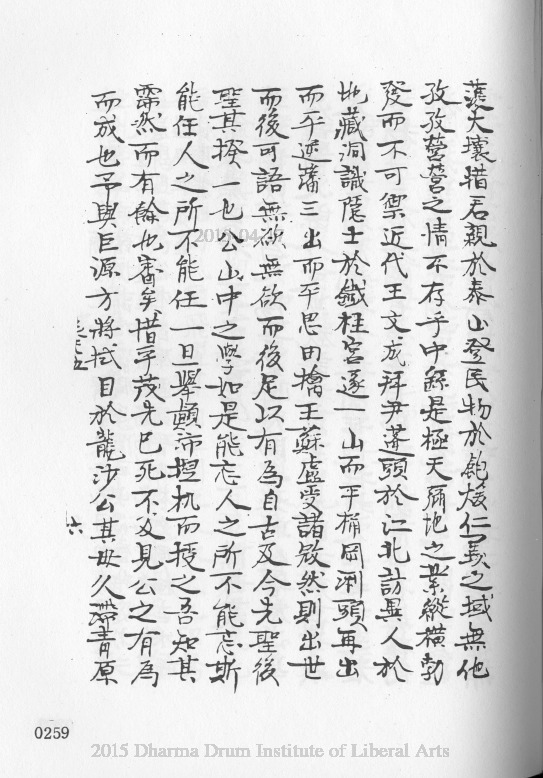 蕩大壤措君親於泰山登民物於飽煖仁義之域無他
孜孜營營之情不存乎中繇是極天彌地之業縱橫勃
發而不可禦近代王文成拜尹蓬頭於江北訪異人於
地藏洞識隱士於鐵柱宮遂一山而平桶岡浰頭再出
而平逆藩三出而平思田擒王蘇盧受諸殺然則出世
而後可語無欲無欲而後足以有為自古及今先聖後
聖其揆一也公山中之學如是能忘人之所不能忘斯
能任人之所不能任一旦舉顛沛扤而授之吾知其
霈然而有餘也審矣惜乎茂先已死不及見公之有為
而成也予與巨源方將拭目於龍沙公其毋久滯青原
六
0259
2015 Dharma Drum Institute of Liberal Arts